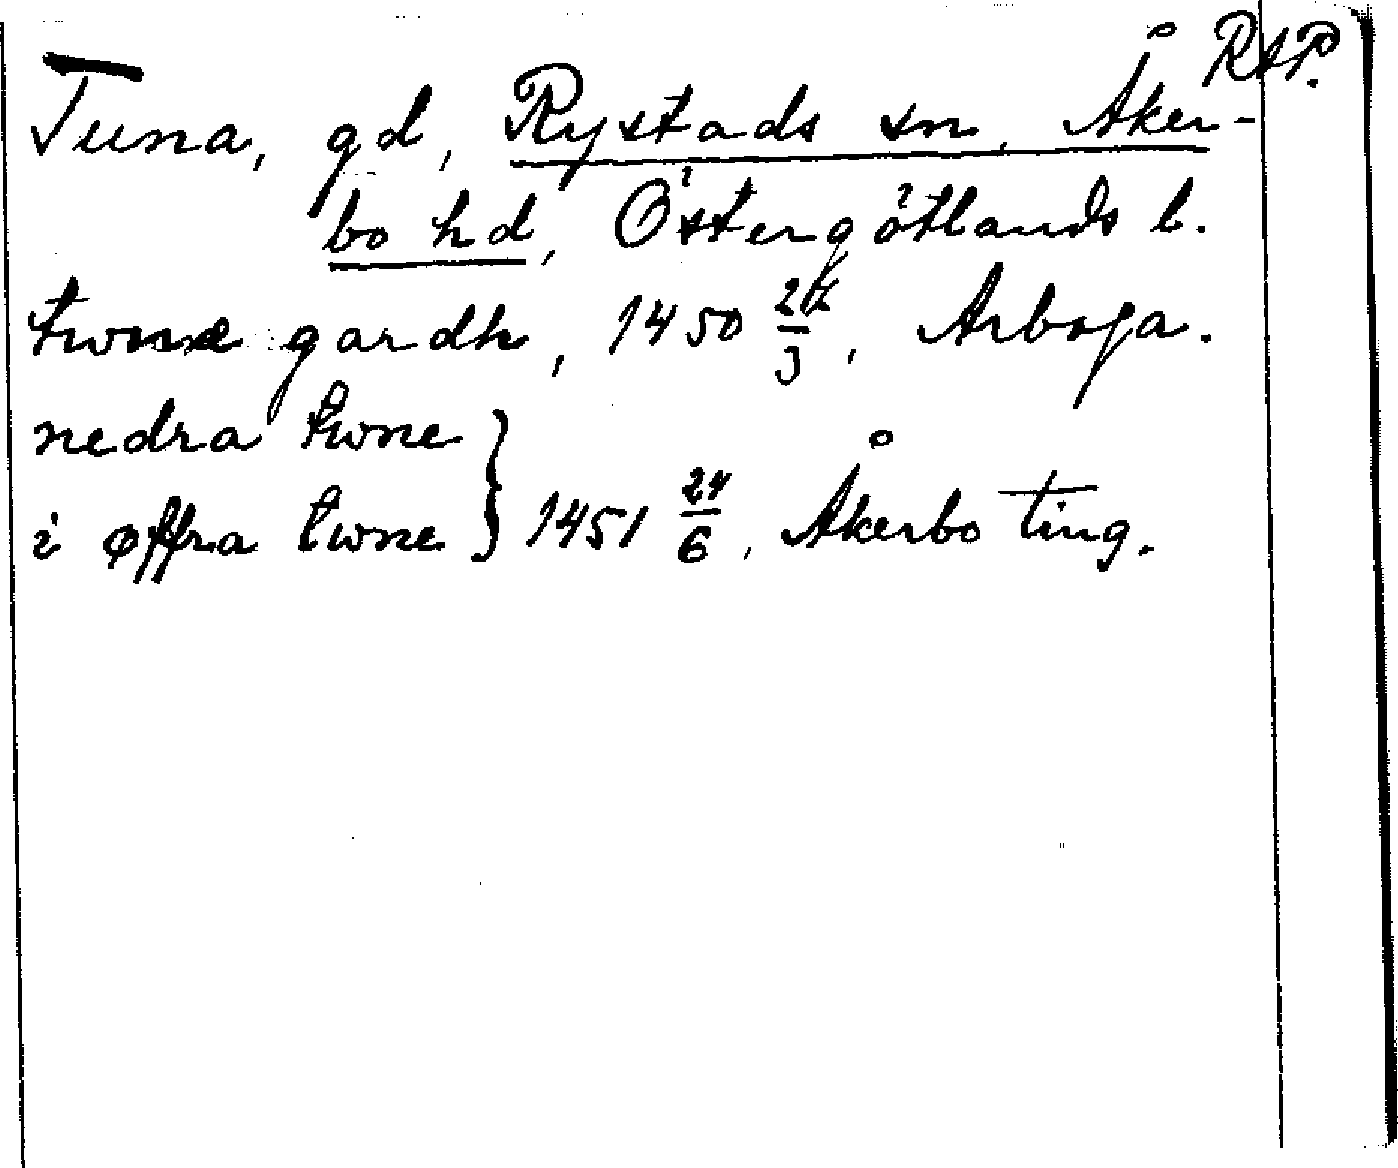 RAP.
Tuna, gd, Rystads sn, Åker-
bo hd, Östergötlands l.
twnæ gardh, 1450 27/3, Arboga.
nedra twne
i øffra twne } 1451 24/6, Åkerbo ting.